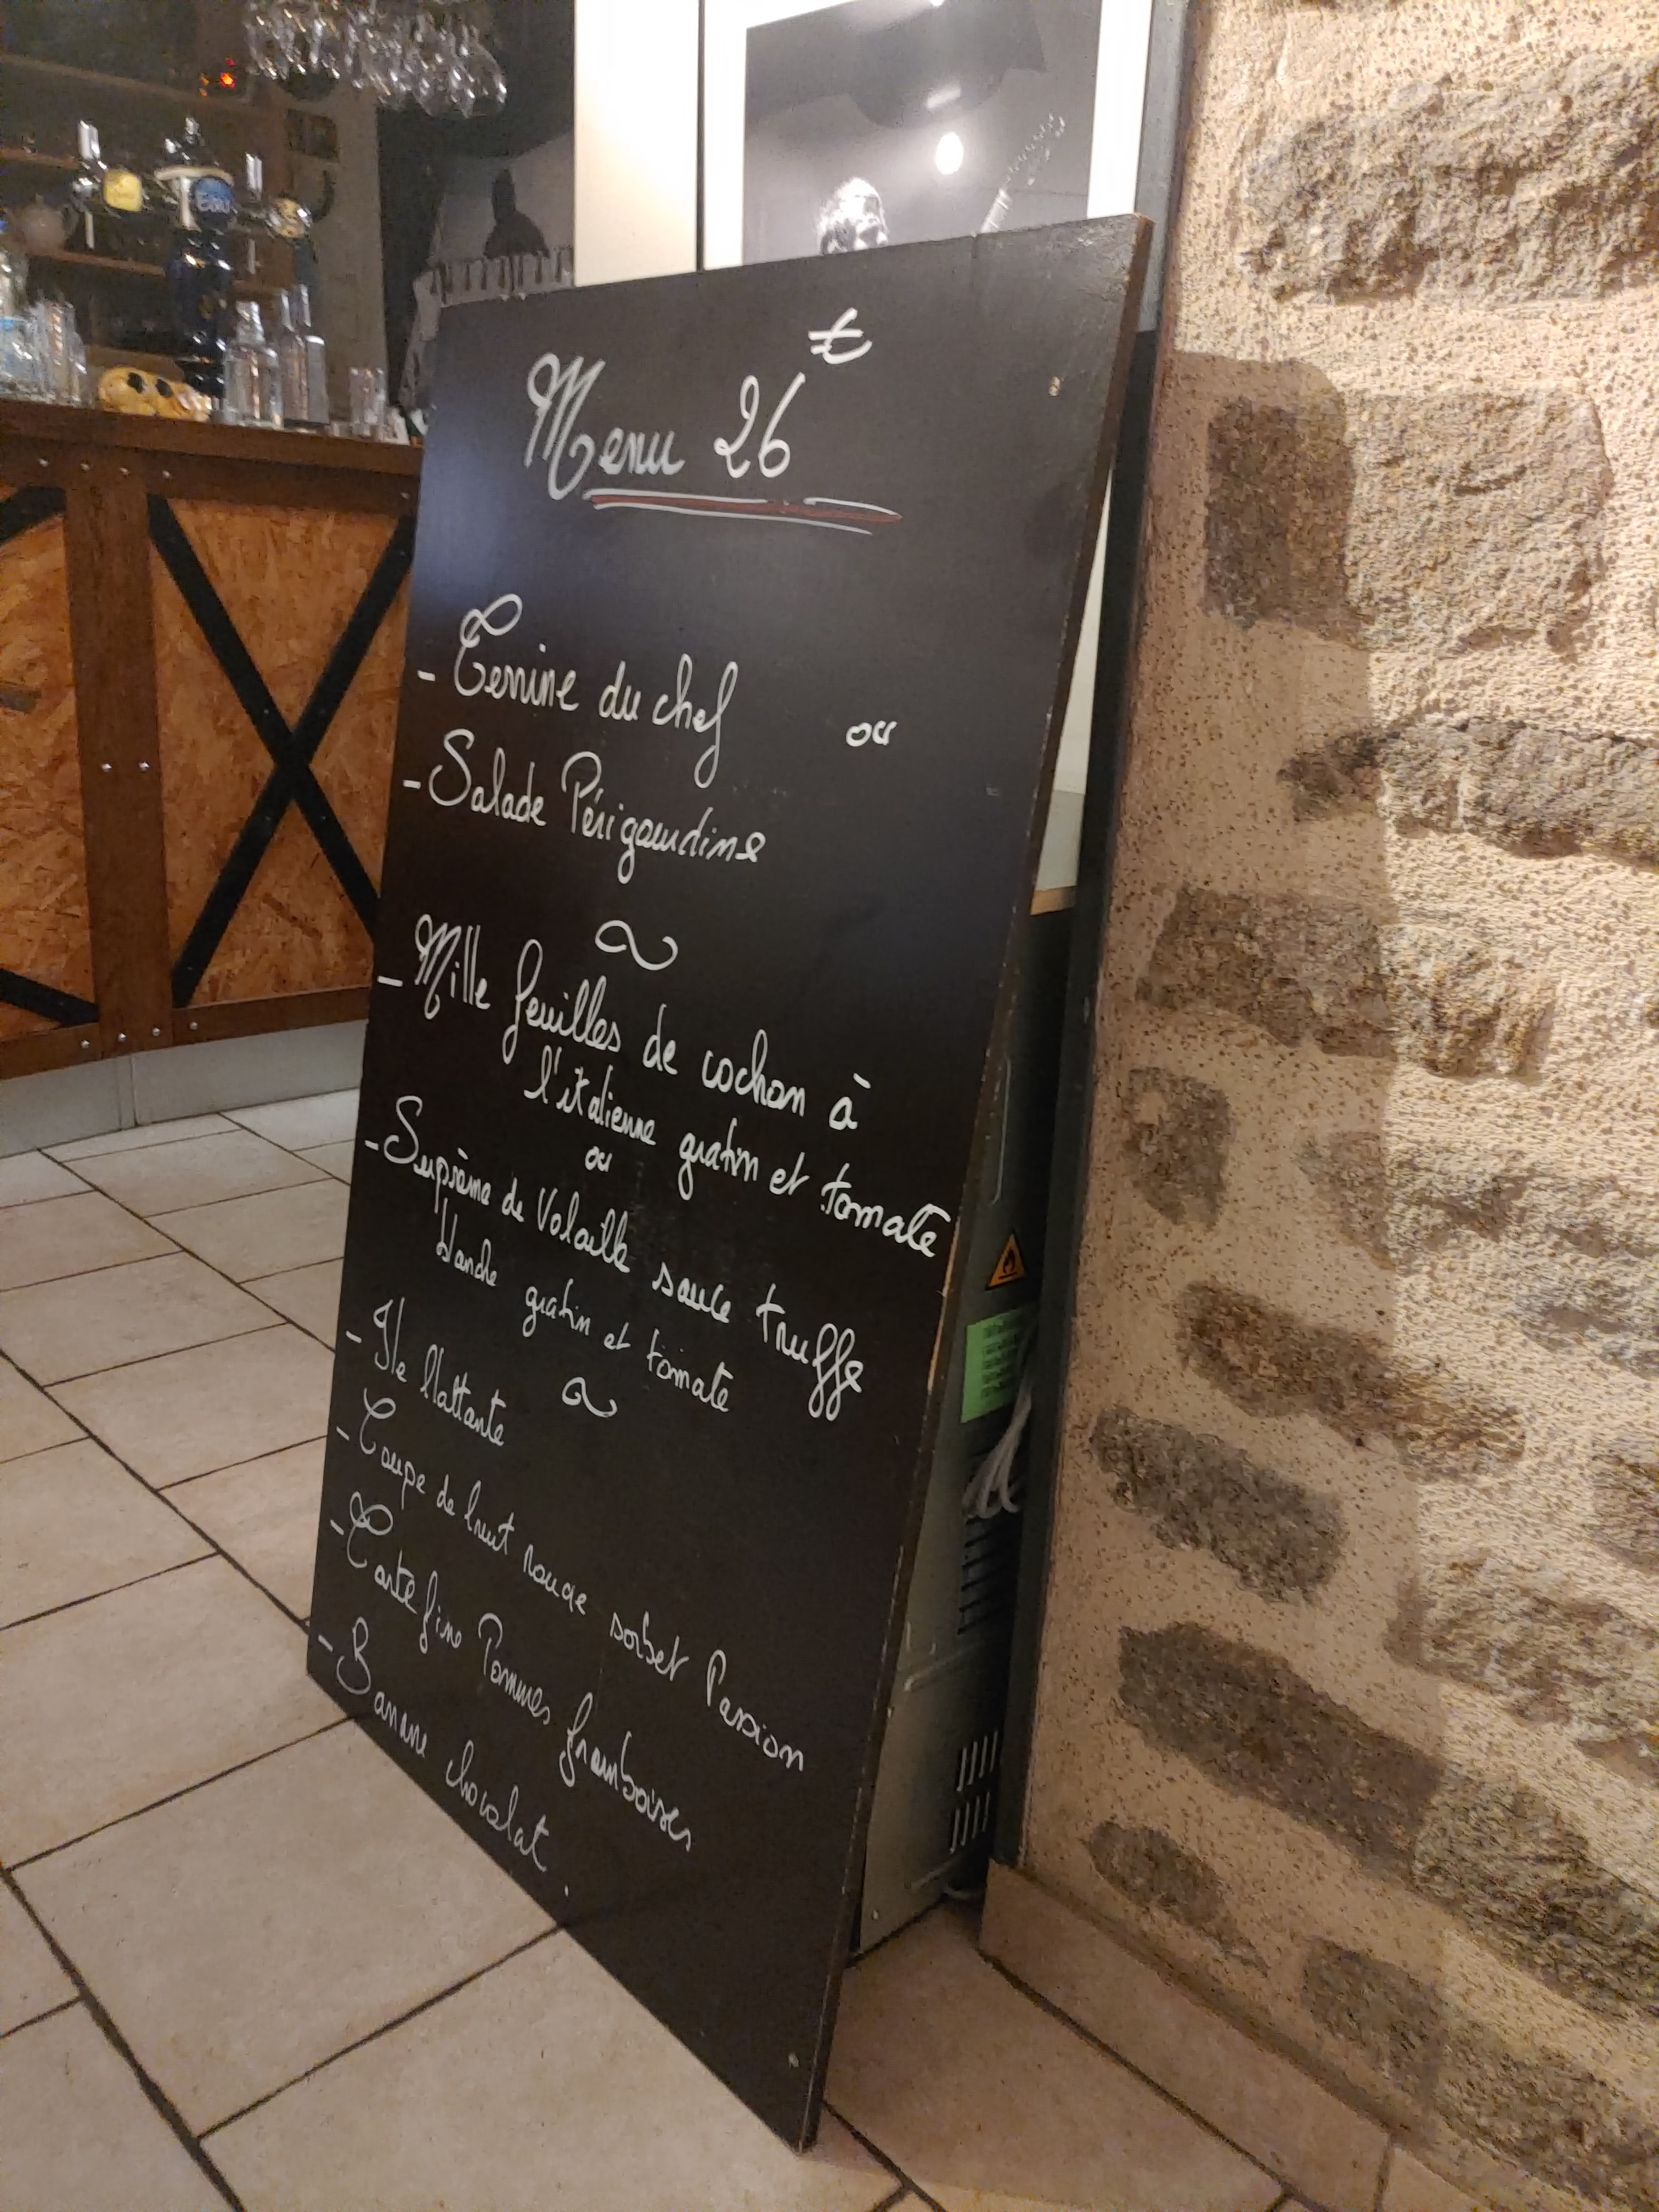 Menu 26€
- Terrine du chef ou
- Salade Périgourdine
- Mille feuilles de cochon à
l'italienne gratin et tomate
ou
- Suprême de Volaille sauce truffe
blanche gratin et tomate
- Ile flottante
- Coupe de fruit rouge sorbet Passion
- Tarte fine Pommes framboises
- Banane chocolat.